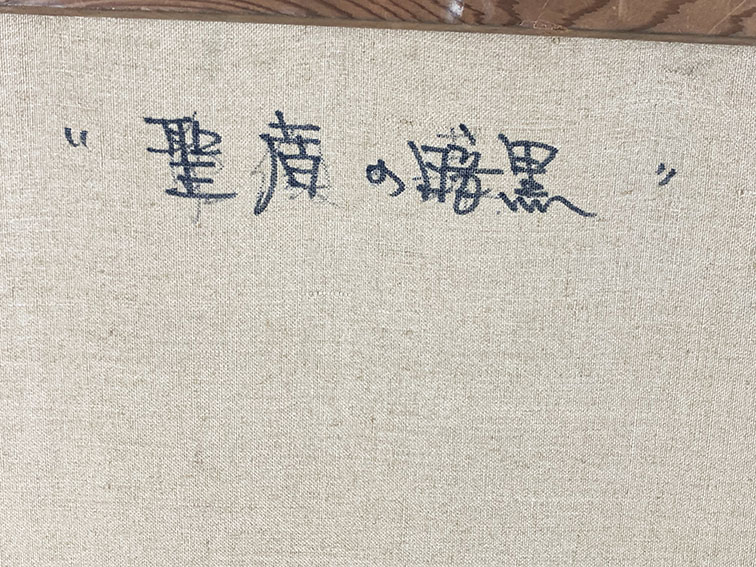 "聖盾の暗黒"